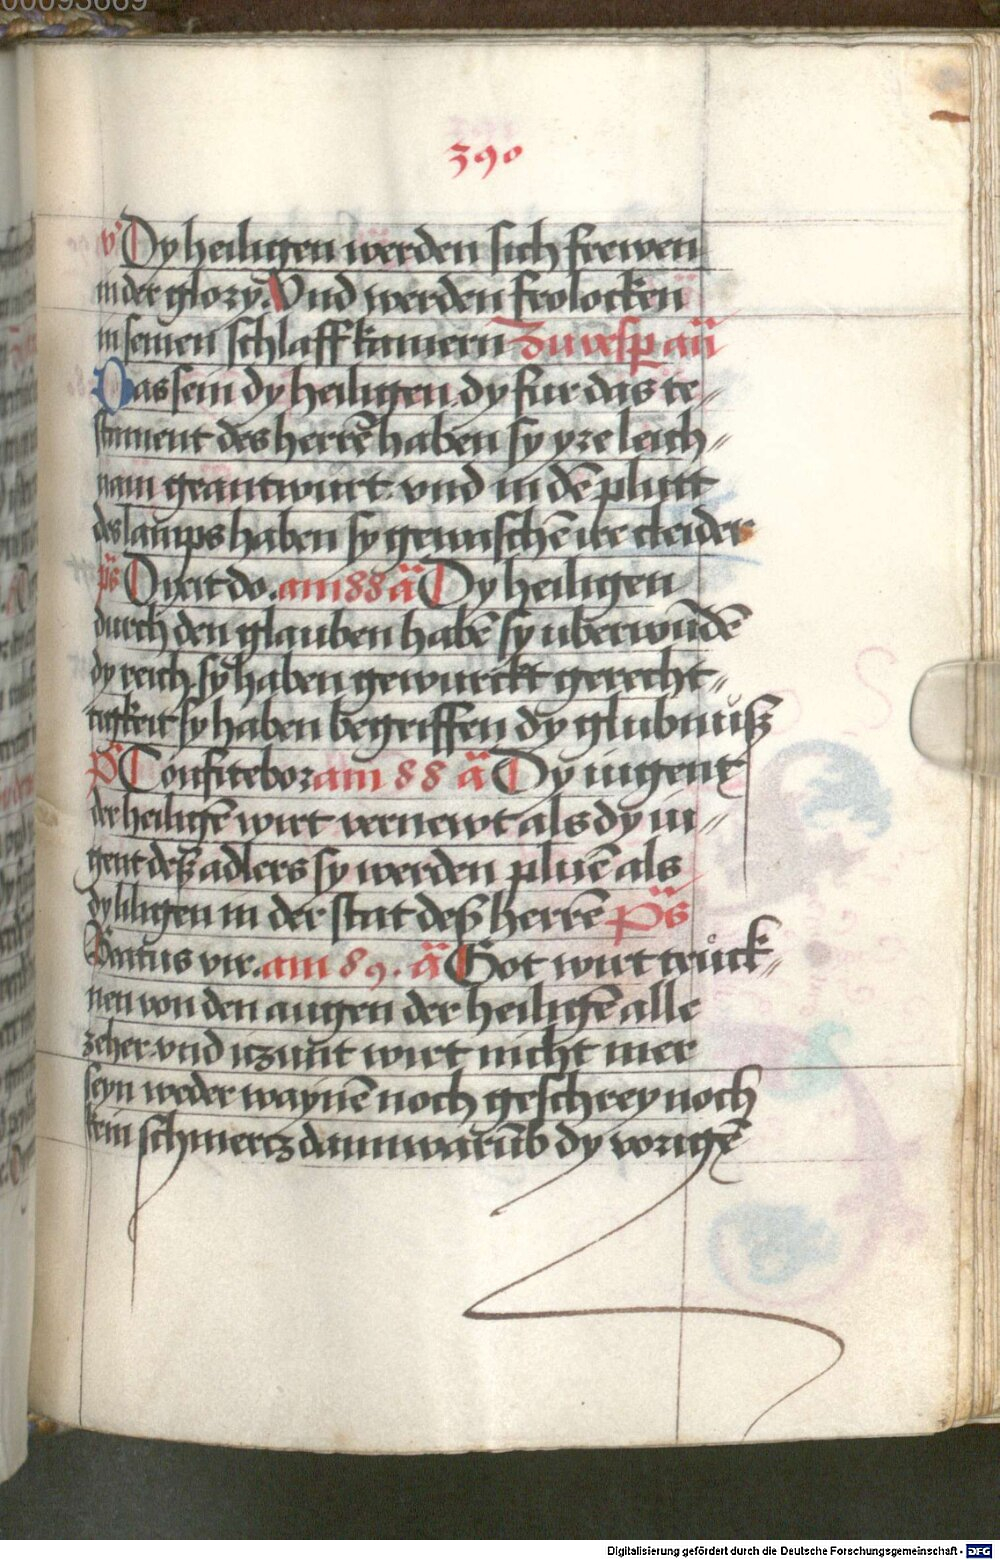 00093669
390
v Dy heiligen werden sich frewen
in der glory. Vnd werden frolocken
in seinen schlaffkamern Zu vesper añ
Das sein dy heiligen dy fur das te⸗
stament des herrē haben sy yre leich⸗
nam geantwurt. vnd in dē plutt
des lamps haben sy gewaschē ire cleider
ps Dixit do. am 88 a Dy heiligen
durch den glauben habē sy uberwūdē
dy reich. sy haben gewurckt gerecht⸗
tigkeit sy haben begriffen dy glubnuß
p Confitebor am 88 a Dy iugent
der heiligē wirt vernewt als dy iu⸗
gent deß adlers sy werden pluē als
dy liligen in der stat deß herrē Ps
Beatus vir. am 89. a Got wirt trück⸗
nen von den augen der heiligē alle
zeher vnd iczunt wirt nicht mer
seyn weder waynē noch geschrey noch
kein schmercz dann warūb dy vorigē
Digitalisierung gefördert durch die Deutsche Forschungsgemeinschaft - DFG